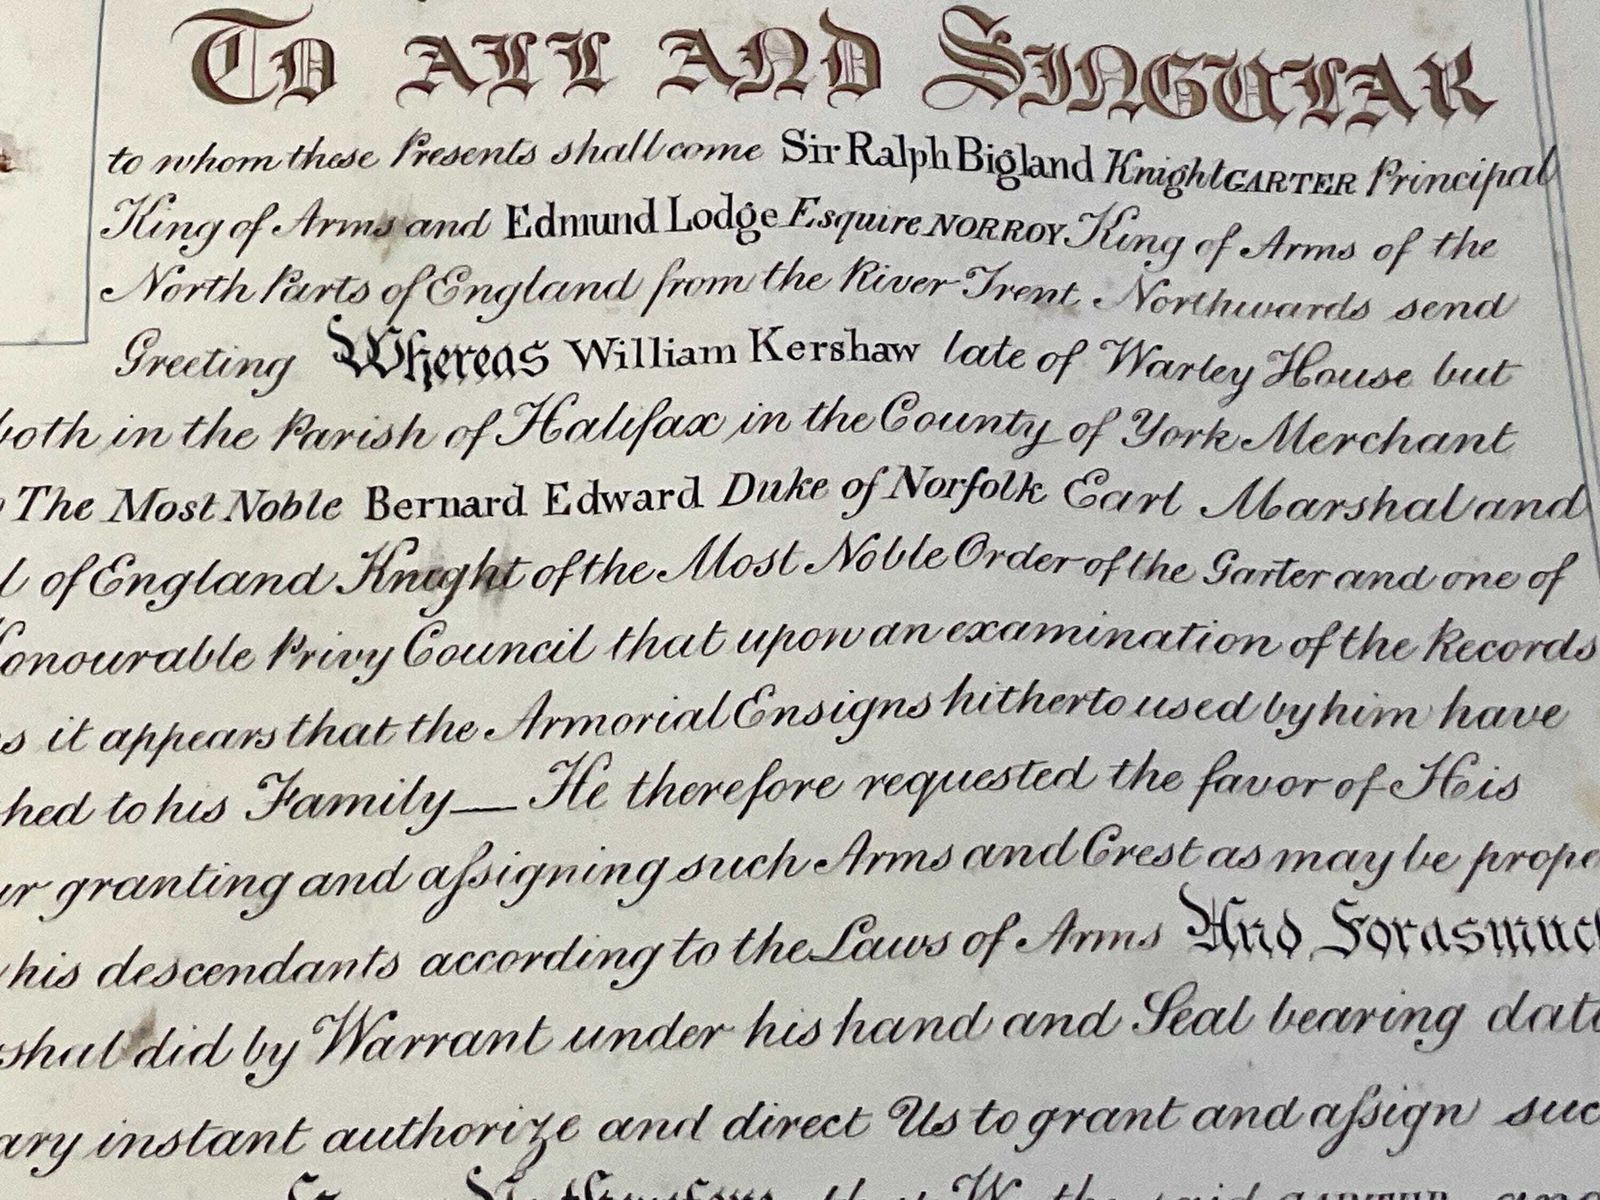 TO ALL AND SINGULAR
to whom these Presents shall come Sir Ralph Bigland Knight GARTER Principal
King of Arms and Edmund Lodge Esquire NORROY King of Arms of the
North Parts of England from the River Trent Northwards send
Greeting Whereas William Kershaw late of Warley House but
both in the Parish of Halifax in the County of York Merchant
The Most Noble Bernard Edward Duke of Norfolk Earl Marshal and
of England Knight of the Most Noble Order of the Garter and one of
Honourable Privy Council that upon an examination of the Records
it appears that the Armorial Ensigns hitherto used by him have
hed to his Family — He therefore requested the favor of His
granting and aſsigning such Arms and Crest as may be prope
his descendants according to the Laws of Arms And Forasmuch
shal did by Warrant under his hand and Seal bearing dat
ary instant authorize and direct Us to grant and aſsign suc